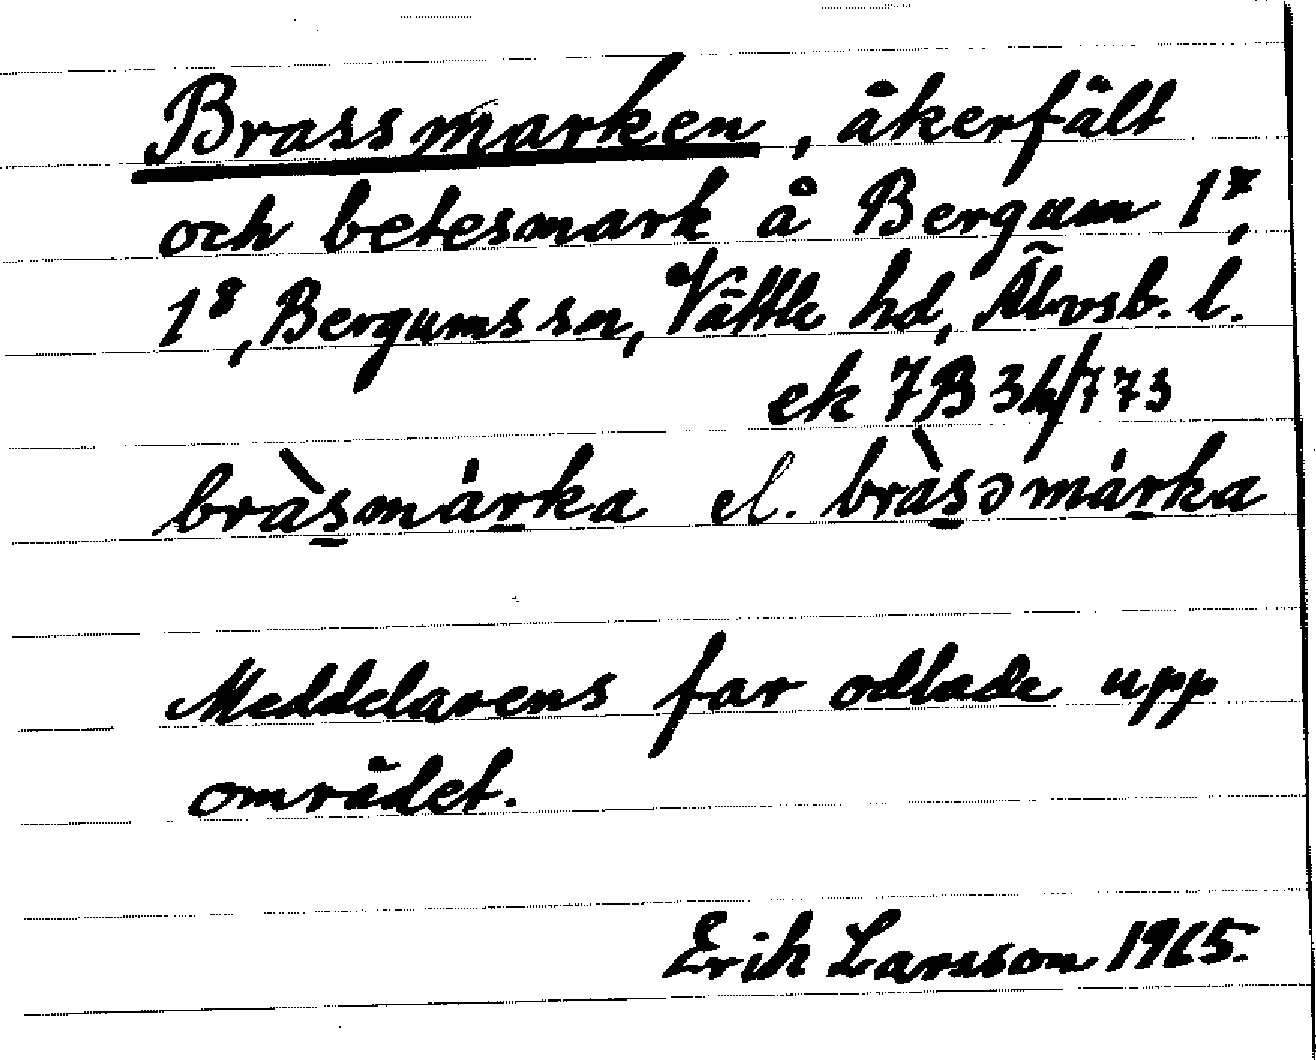 Brassmarken, åkerfält
och betesmark å Bergum 1⁷,
1⁸, Bergums sn, Vättle hd, Älvsb. l.
ek 7B 3h/773
bràs̱máṟka el. bràs̱ɔmáṟka
Meddelarens far odlade upp
området.
Erik Larsson 1965.